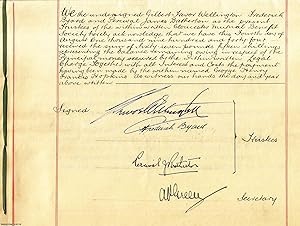 We the undersigned Gilbert James Wellington Frederick
Byard and Percival James Batherton as the Committee
Trustees of the within written Worcester Mutual Benefit
Society hereby acknowledge that we have this Fourth day of
August One thousand nine hundred and forty four
received the sum of sixty seven pounds fifteen shillings
representing the balance remaining owing in respect of the
Principal moneys secured by the within written Legal
Charge Together with all Interest and Costs the payment
having been made by the within named George Henry
Francis Hopkins As witness our hands the day and year
above written
Signed
Frederick Byard
Trustees
Secretary